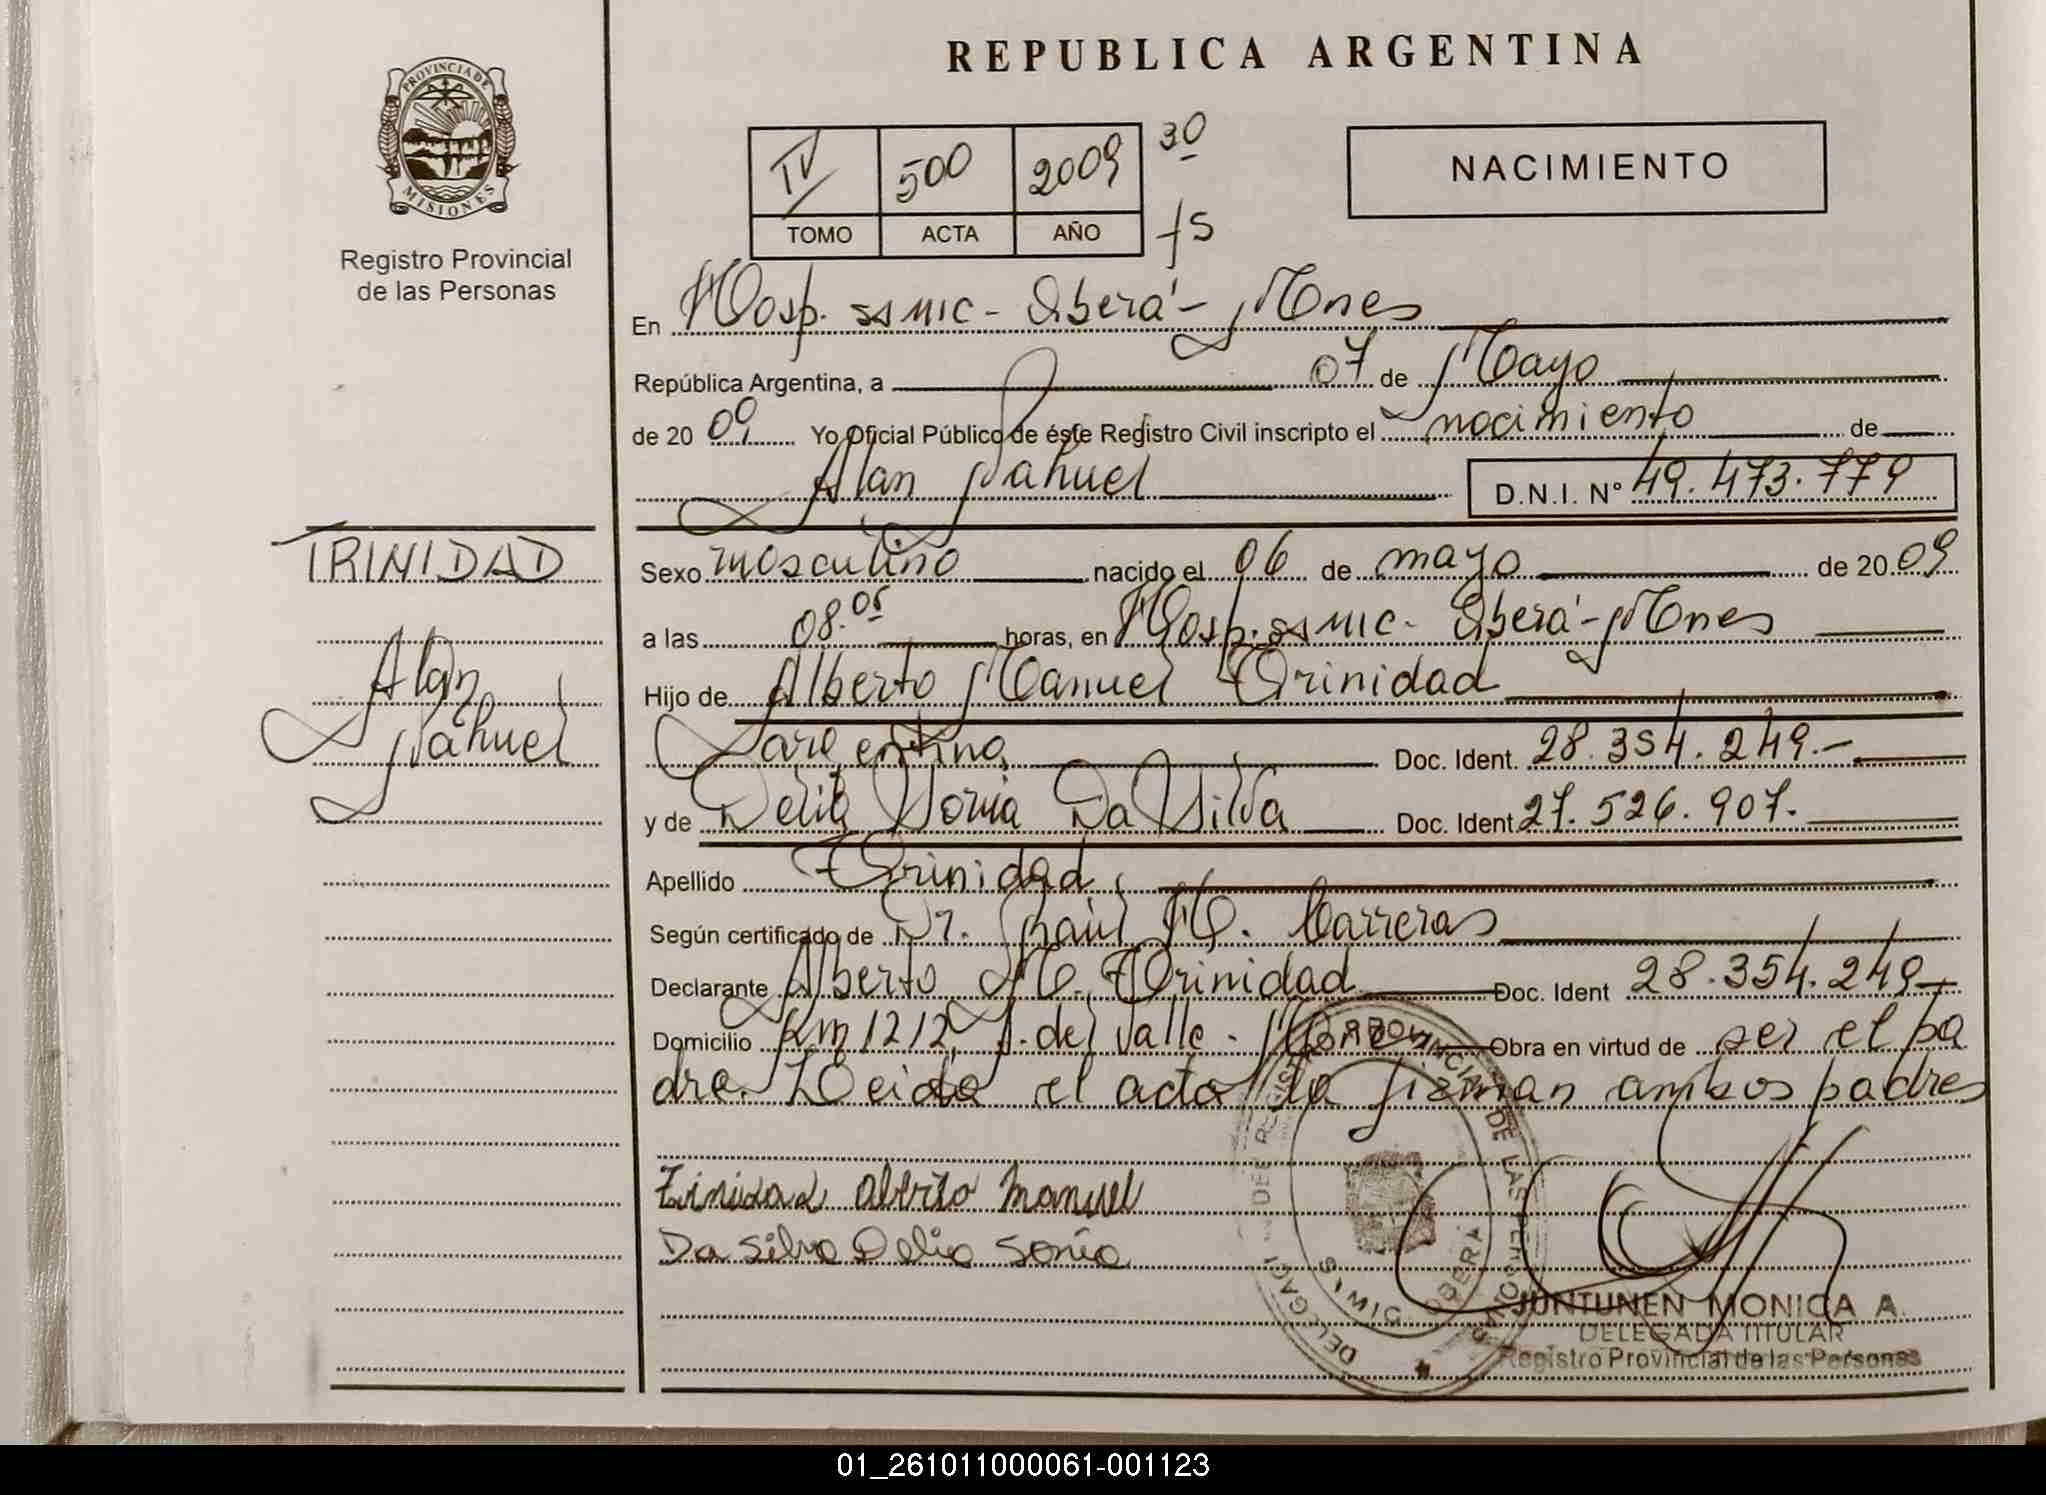 REPUBLICA ARGENTINA
PROVINCIA DE
MISIONES
Registro Provincial
de las Personas
IV 500 2009 30
TOMO ACTA AÑO fs
NACIMIENTO
En Hosp. SAMIC - Oberá - Mnes
República Argentina, a 07 de Mayo
de 2009 Yo Oficial Público de éste Registro Civil inscripto el nacimiento de
Alan Nahuel D.N.I. N° 49.473.779
TRINIDAD
Alan
Nahuel
Sexo masculino nacido el 06 de mayo de 2009
a las 08.05 horas, en Hosp. SAMIC - Oberá - Mnes
Hijo de Alberto Manuel Trinidad
argentino Doc. Ident. 28.354.249.-
y de Delia Sonia Da Silva Doc. Ident 27.526.907.
Apellido Trinidad
Según certificado de Dr. Raúl H. Carreras
Declarante Alberto M. Trinidad Doc. Ident 28.354.249-
Domicilio Km 1212 A. del Valle - Mnes Obra en virtud de ser el pa
dre. Leida el acta la firman ambos padres
Trinidad Alberto Manuel
Da Silva Delia Sonia
PROVINCIAL DE LAS PERSONAS
OBERA
JUNTUNEN MONICA A.
DELEGADA TITULAR
Registro Provincial de las Personas
01_261011000061-001123